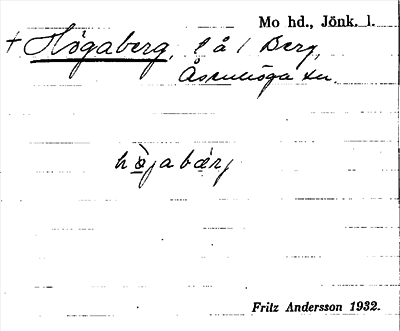 Mo hd., Jönk. l.
+ Högaberg, l å 1 Berg,
Åsenhöga sn.
högabärj
Fritz Andersson 1932.